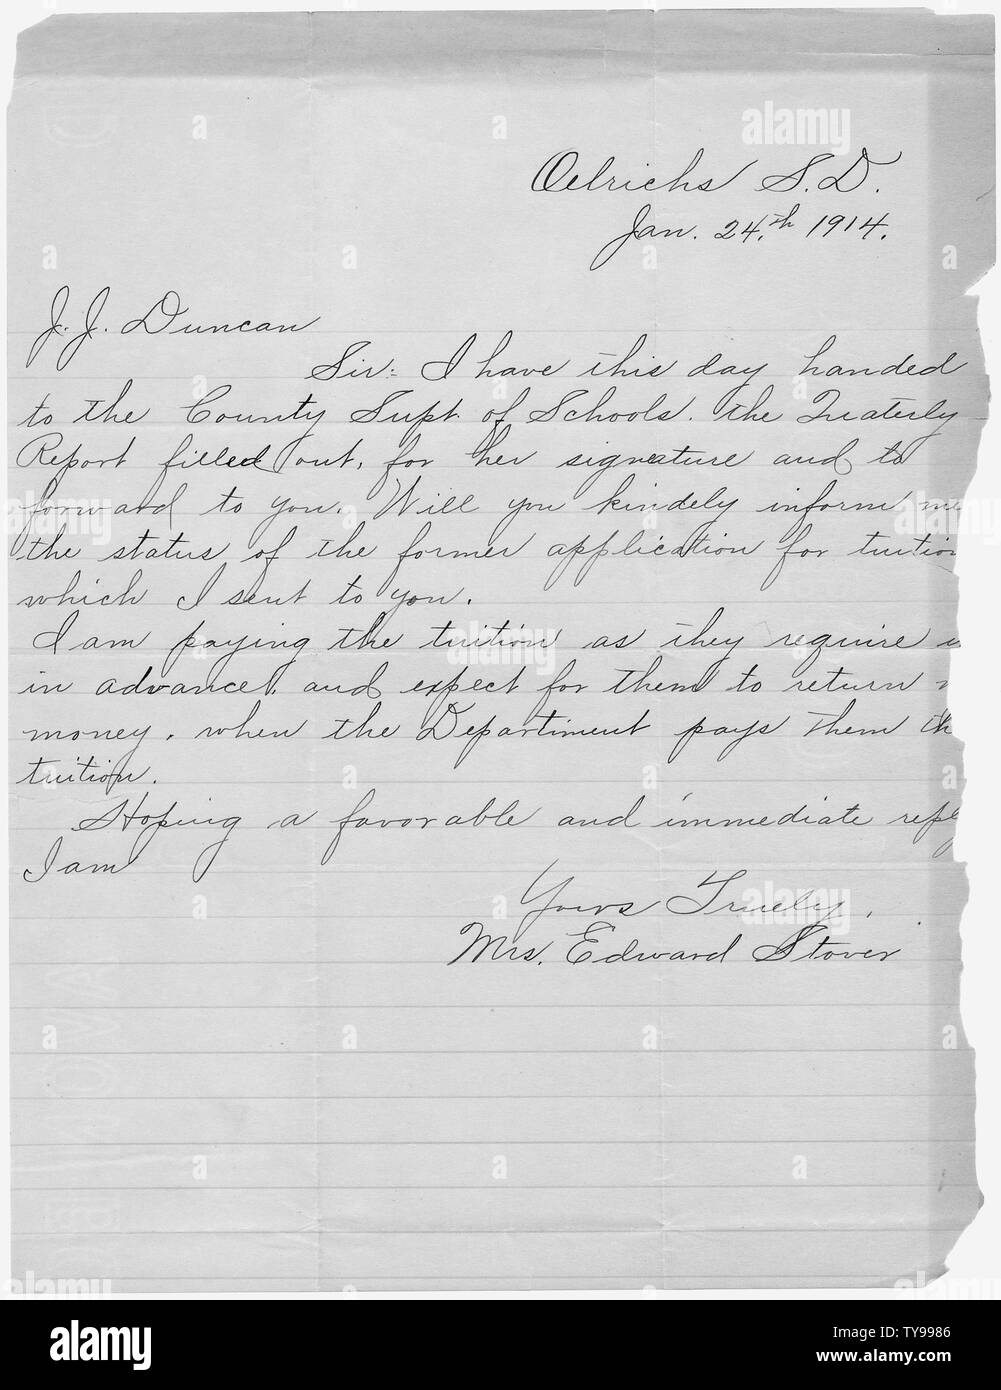 Oelrichs S.D.
Jan. 24.th 1914.
J. J. Duncan
Sir: I have this day handed
to the County Supt. of Schools. the Quaterly
Report filled out, for her signature and to
forward to you. Will you kindely inform me
the status of the former application for tuition
which I sent to you.
I am paying the tuition as they require
in advance, and expect for them to return
money. when the Department pays them the
tuition.
Hoping a favorable and immediate reply
I am
Yours Truely,
Mrs. Edward Stover
alamy
Image ID: TY9986
www.alamy.com